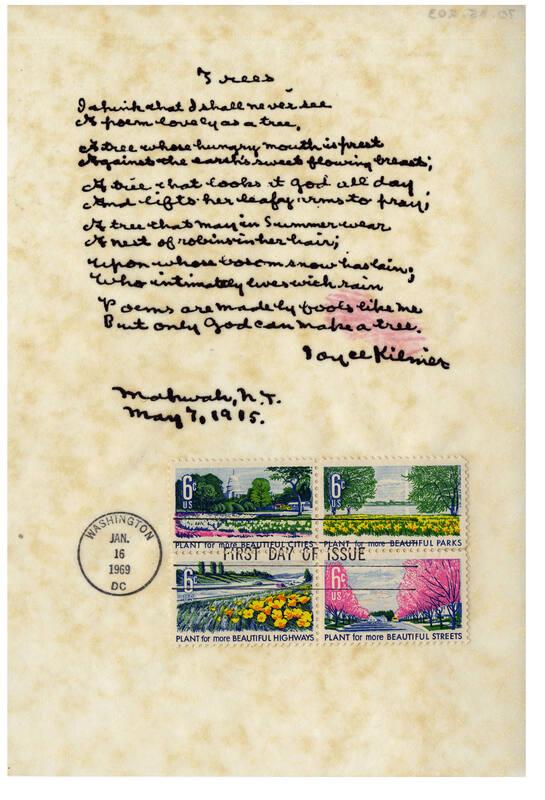 Trees
I think that I shall never see
A poem lovely as a tree.
A tree whose hungry mouth is prest
Against the earth's sweet flowing breast;
A tree that looks at God all day
And lifts her leafy arms to pray;
A tree that may in Summer wear
A nest of robins in her hair;
Upon whose bosom snow has lain;
Who intimately lives with rain
Poems are made by fools like me
But only God can make a tree.
Joyce Kilmer
Mahwah, N.J.
May 7, 1915.
6c US
PLANT for more BEAUTIFUL CITIES
6c US
PLANT for more BEAUTIFUL PARKS
WASHINGTON
JAN.
16
1969
DC
FIRST DAY OF ISSUE
6c US
PLANT for more BEAUTIFUL HIGHWAYS
6c US
PLANT for more BEAUTIFUL STREETS